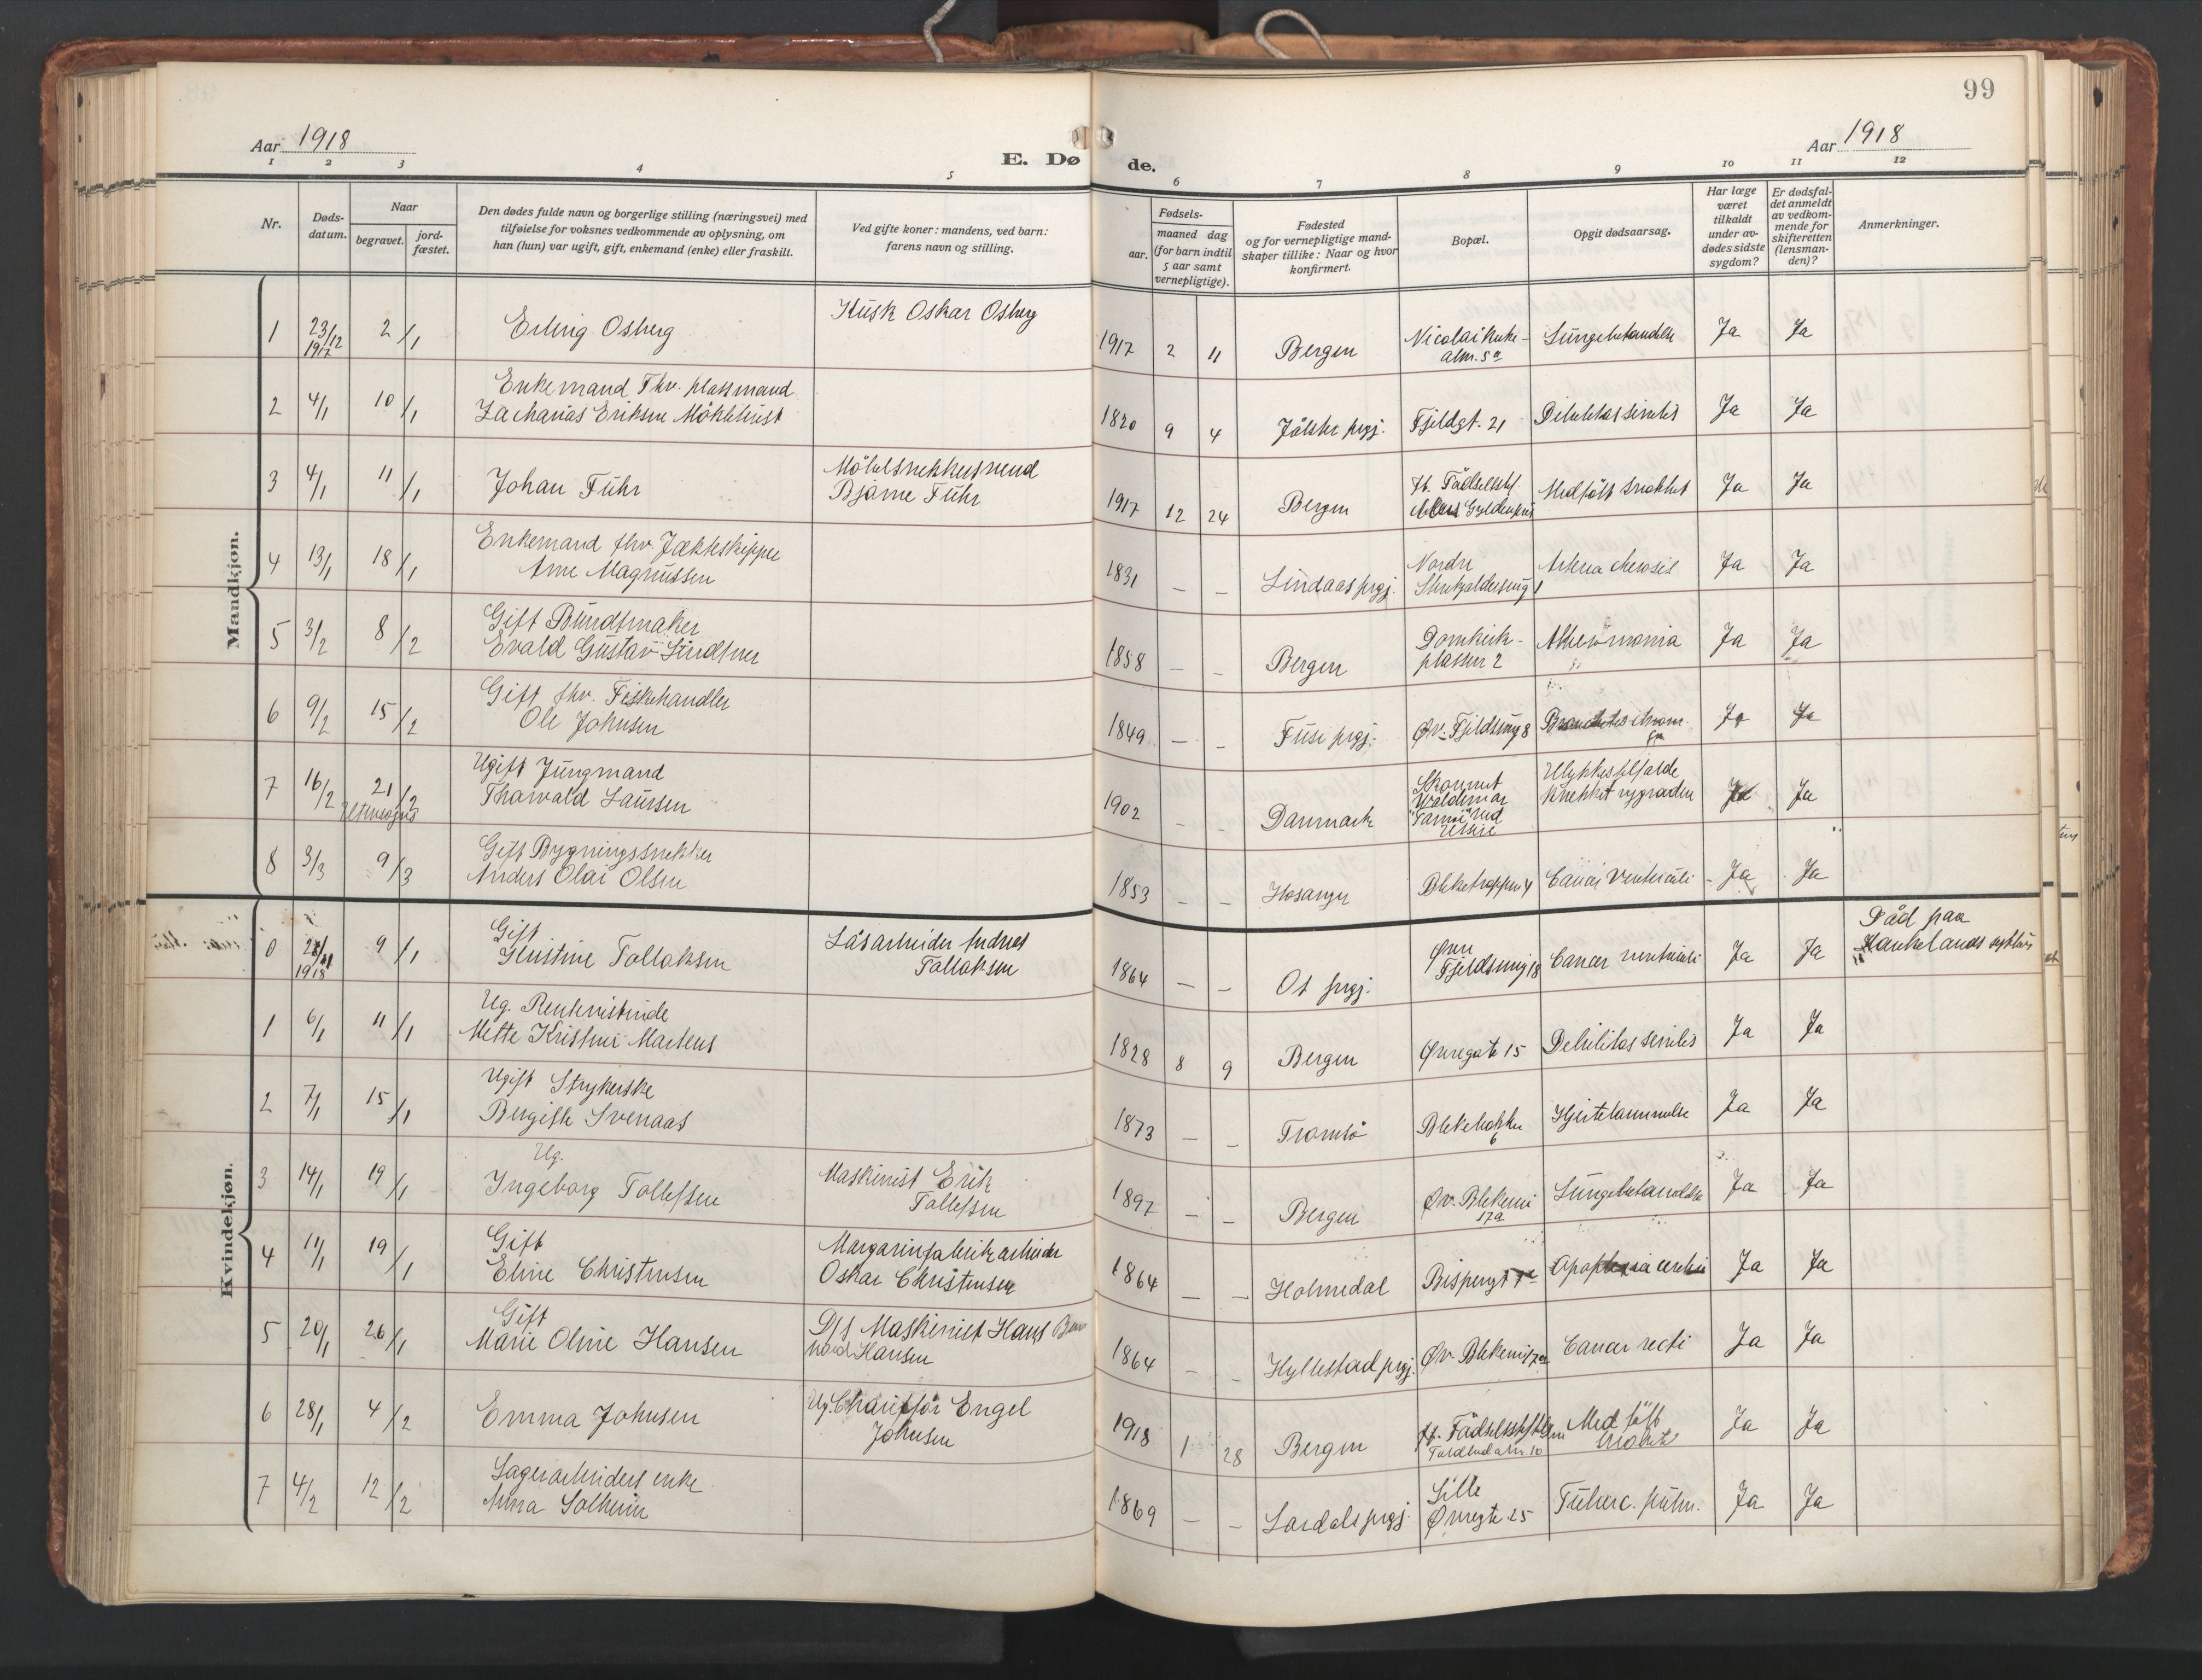 99
Aar 1918
E. Døde.
Aar 1918
1 2 3 4 5 6 7 8 9 10 11 12
Nr.
Døds-
datum.
Naar
begravet.
jord-
fæstet.
Den dødes fulde navn og borgerlige stilling (næringsvei) med
tilføielse for voksnes vedkommende av oplysning, om
han (hun) var ugift, gift, enkemand (enke) eller fraskilt.
Ved gifte koner: mandens, ved barn:
farens navn og stilling.
Fødsels-
aar.
maaned dag
(for barn indtil
5 aar samt
vernepligtige).
Fødested
og for vernepligtige mand-
skaper tillike: Naar og hvor
konfirmert.
Bopæl.
Opgit dødsaarsag.
Har læge
været
tilkaldt
under av-
dødes sidste
sygdom?
Er dødsfal-
det anmeldt
av vedkom-
mende for
skifteretten
(lensman-
den)?
Anmerkninger.
Mandkjøn.
1 23/12 1917 2/1 Erling Osberg Kusk Oskar Osberg 1917 2 11 Bergen Nicolaikirke-
alm. 5a Lungebetændelse Ja Ja
2 4/1 10/1 Enkemand Fhv. plassmand
Zacharias Eriksen Møklebust 1820 9 4 Jølster prgj. Fjeldgt. 21 Debilitas senilis Ja Ja
3 4/1 11/1 Johan Führ Møbelsnekkersvend
Bjarne Führ 1917 12 24 Bergen Medfødt svakhet Ja Ja
4 13/1 18/1 Enkemand fhv. Jækteskipper
Arne Magnussen 1831 – – Lindaas prgj. Nordre
1 Ja Ja
5 3/2 8/2 Gift Bundtmaker
Evald Gustav Lindtner 1858 – – Bergen Domkirk-
plassen 2 Ja Ja
6 9/2 15/2 Gift fhv. Fiskehandler
Ole Johnsen 1849 – – Fuse prgj. Øv. Fjeldsmug 8 Ja Ja
7 16/2 21/2 Ugift Jungmand
Thorvald Laursen 1902 – – Danmark Skonnert
Waldemar
ved
Utsire Ulykkestilfælde
Knekket rygraden Ja Ja
8 3/3 9/3 Gift Bygningssnekker
Anders Olai Olsen 1853 – – Hosanger Bleketroppen 4 Cancer Ventriculi Ja Ja
Kvindekjøn.
0 1918 9/1 Gift
Kristine Tollaksen Løsarbeider Andreas
Tollaksen 1864 – – Os prgj. Øvre
Fjeldsmug 18 Cancer ventriculi Ja Ja Død paa
Haukelands sykehus
1 6/1 11/1 Ug. Rentenistinde
Mette Kristine Martens 1828 8 9 Bergen Øvregate 15 Debilitas senilis Ja Ja
2 7/1 15/1 Ugift Strykerske
Bergithe Svenaas 1873 – – Tromsø 6 Hjertelammelse Ja Ja
3 14/1 19/1 Ug.
Ingeborg Tollefsen Maskinist Erik
Tollefsen 1897 – – Bergen Øv. Blekevei
17a Lungebetændelse Ja Ja
4 11/1 19/1 Gift
Eline Christensen Margarinfabrikarbeider
Oskar Christensen 1864 – – Holmedal Bispengt Apoplexia cerebri Ja Ja
5 20/1 26/1 Gift
Marie Oline Hansen D/s Maskinist Hans Bern
hard Hansen 1864 – – Hyllestad prgj. Øv. Blekevei 17a Cancer recti Ja Ja
6 28/1 4/2 Emma Johnsen Ug. Chauffør Engel
Johnsen 1918 1 28 Bergen Medfødt
svakhet Ja Ja
7 4/2 12/2 Lagerarbeiders enke
Anna Solheim 1869 – – Lærdals prgj. Lille
Øvregt 25 Tuberc. pulm. Ja Ja